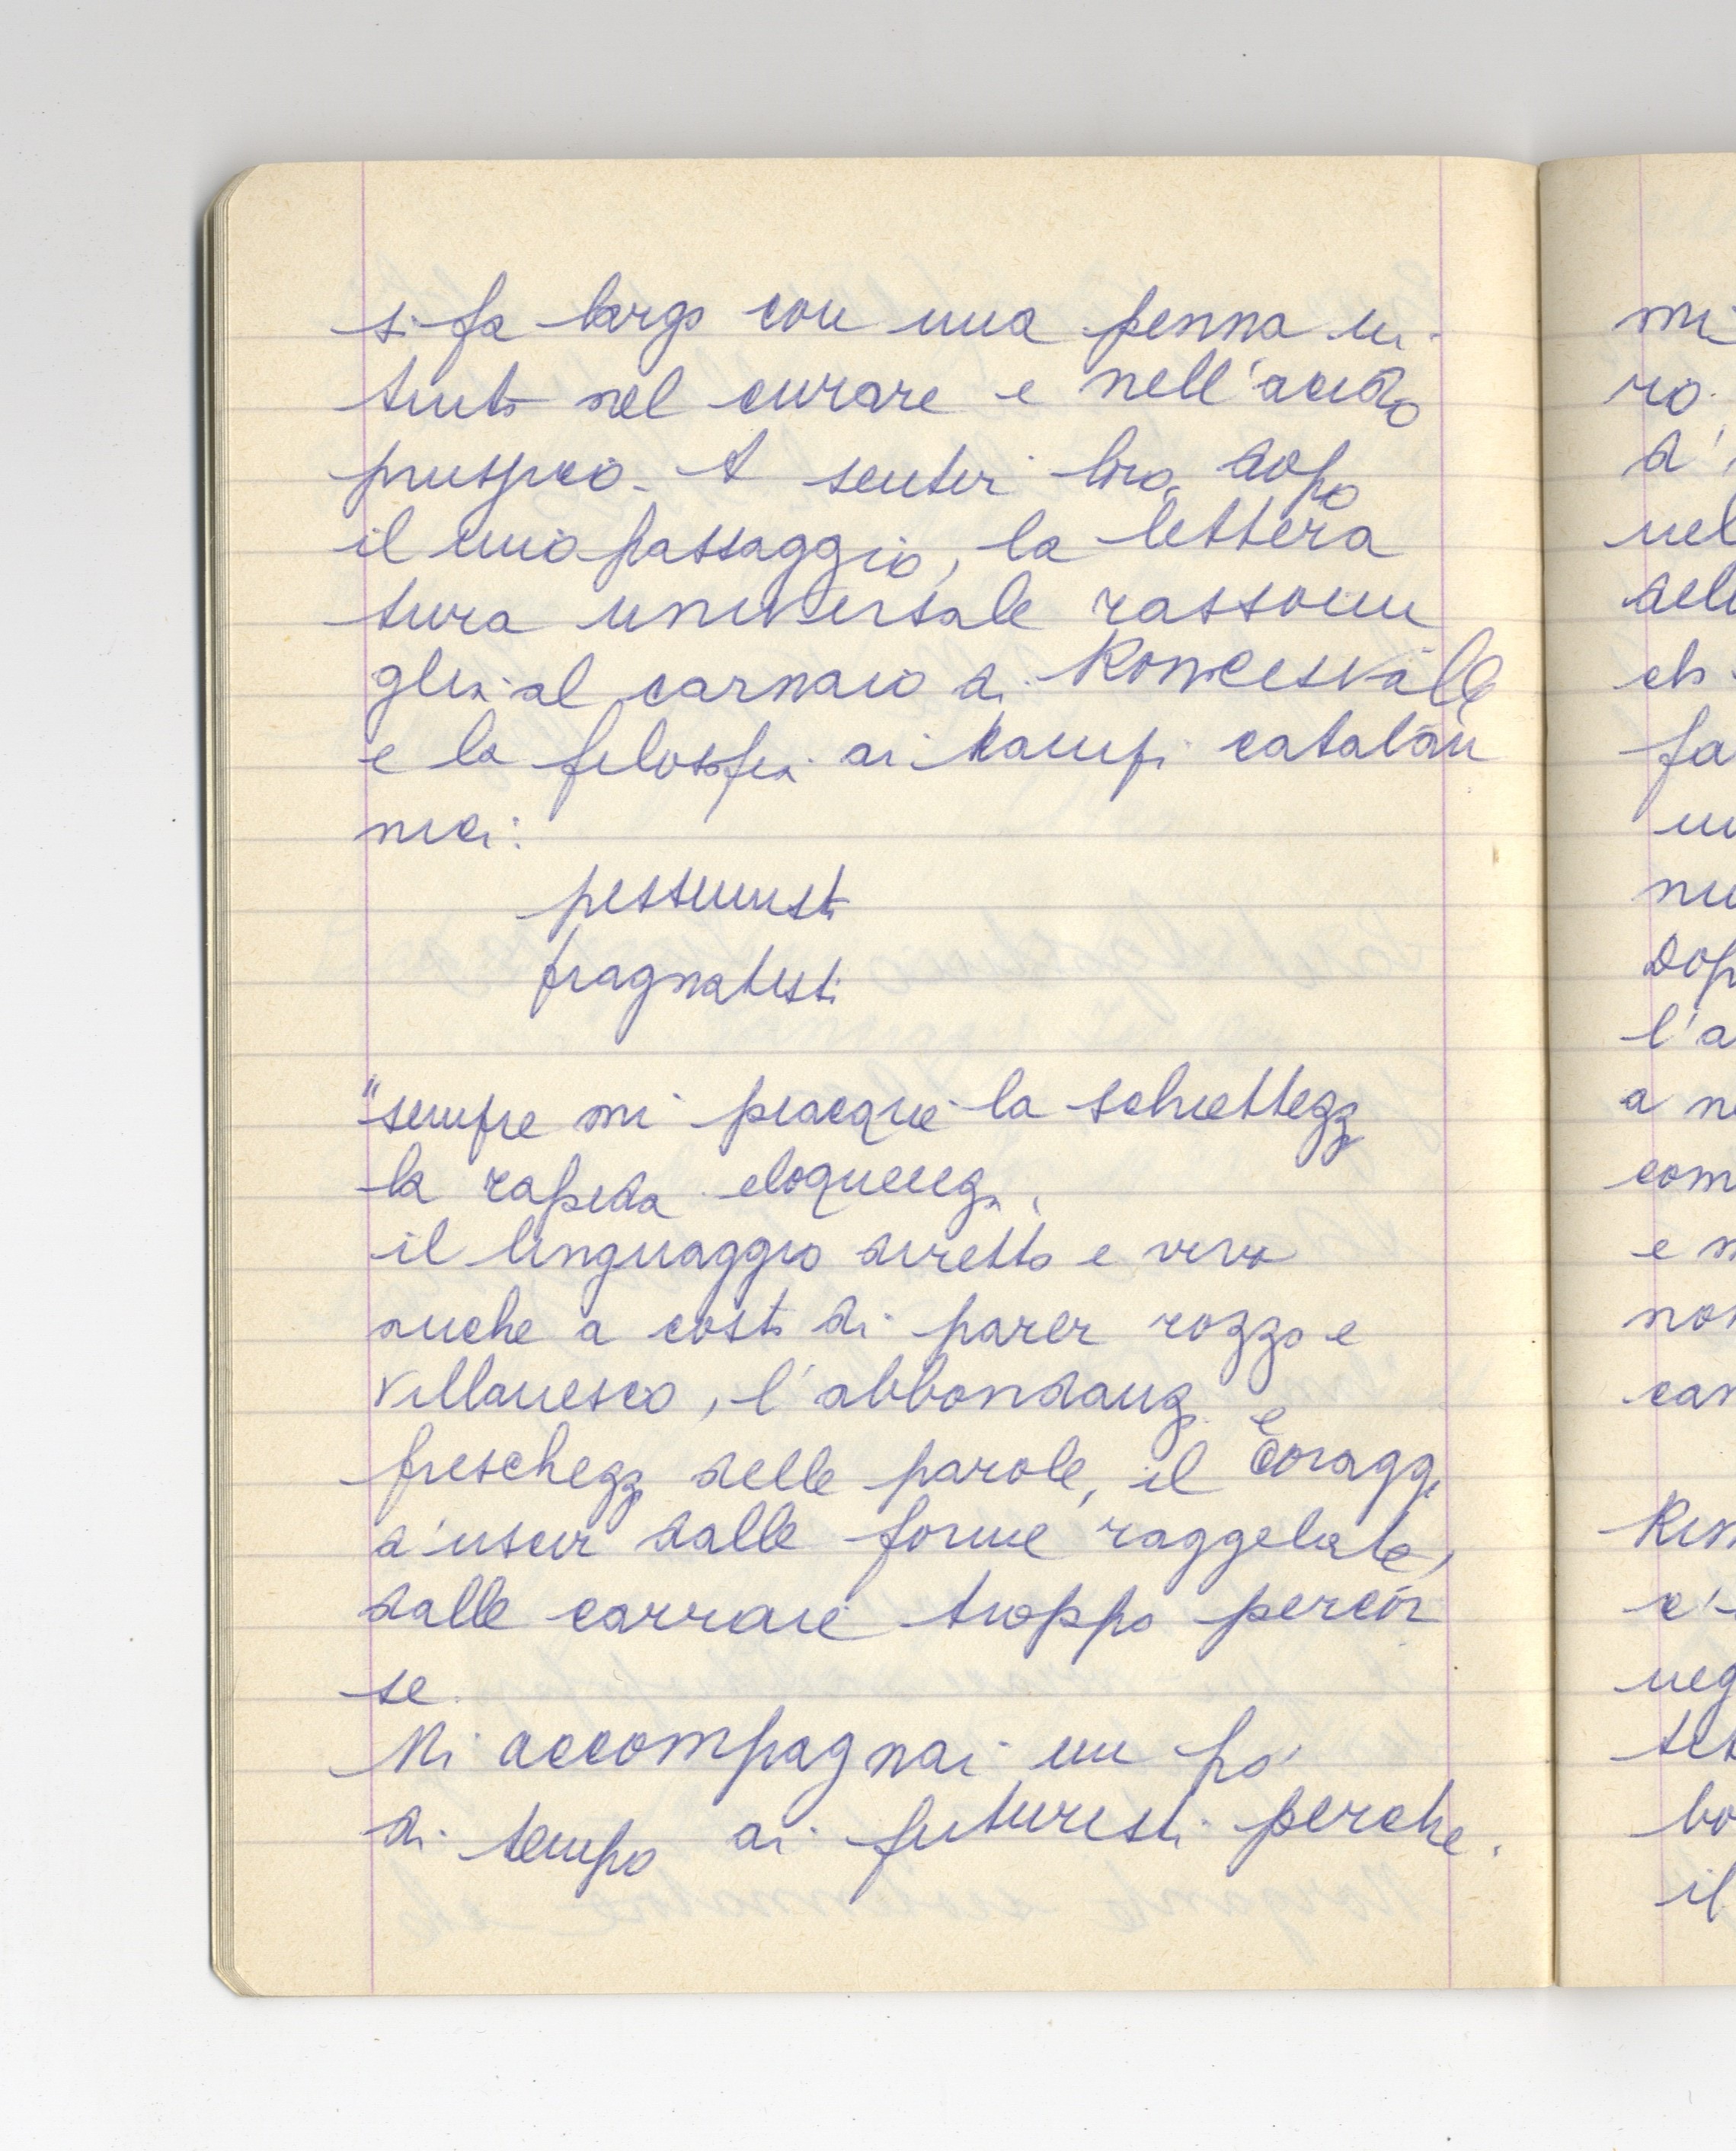 si fa largo con una penna in
tinta nel curare e nell'acido
prussico. A sentir loro, dopo
il mio passaggio, la lettera
tura universale rassomi
glia al carnaio di Roncisvalle
e la filosofia ai campi catalau
nici:
pessimisti
pragmatisti
"sempre mi piacque la schiettezza
la rapida eloquenza,
il linguaggio diretto e vivo
anche a costo di parer rozzo e
villanesco, l'abbondanza e
freschezza delle parole, il coraggio
d'uscir dalle forme raggelate,
dalle carraie troppo percor
se.
Mi accompagnai un po'
di tempo ai futuristi perché
mi
ro
d'
nel
fa
Dop
l'a
a
com
e
non
il